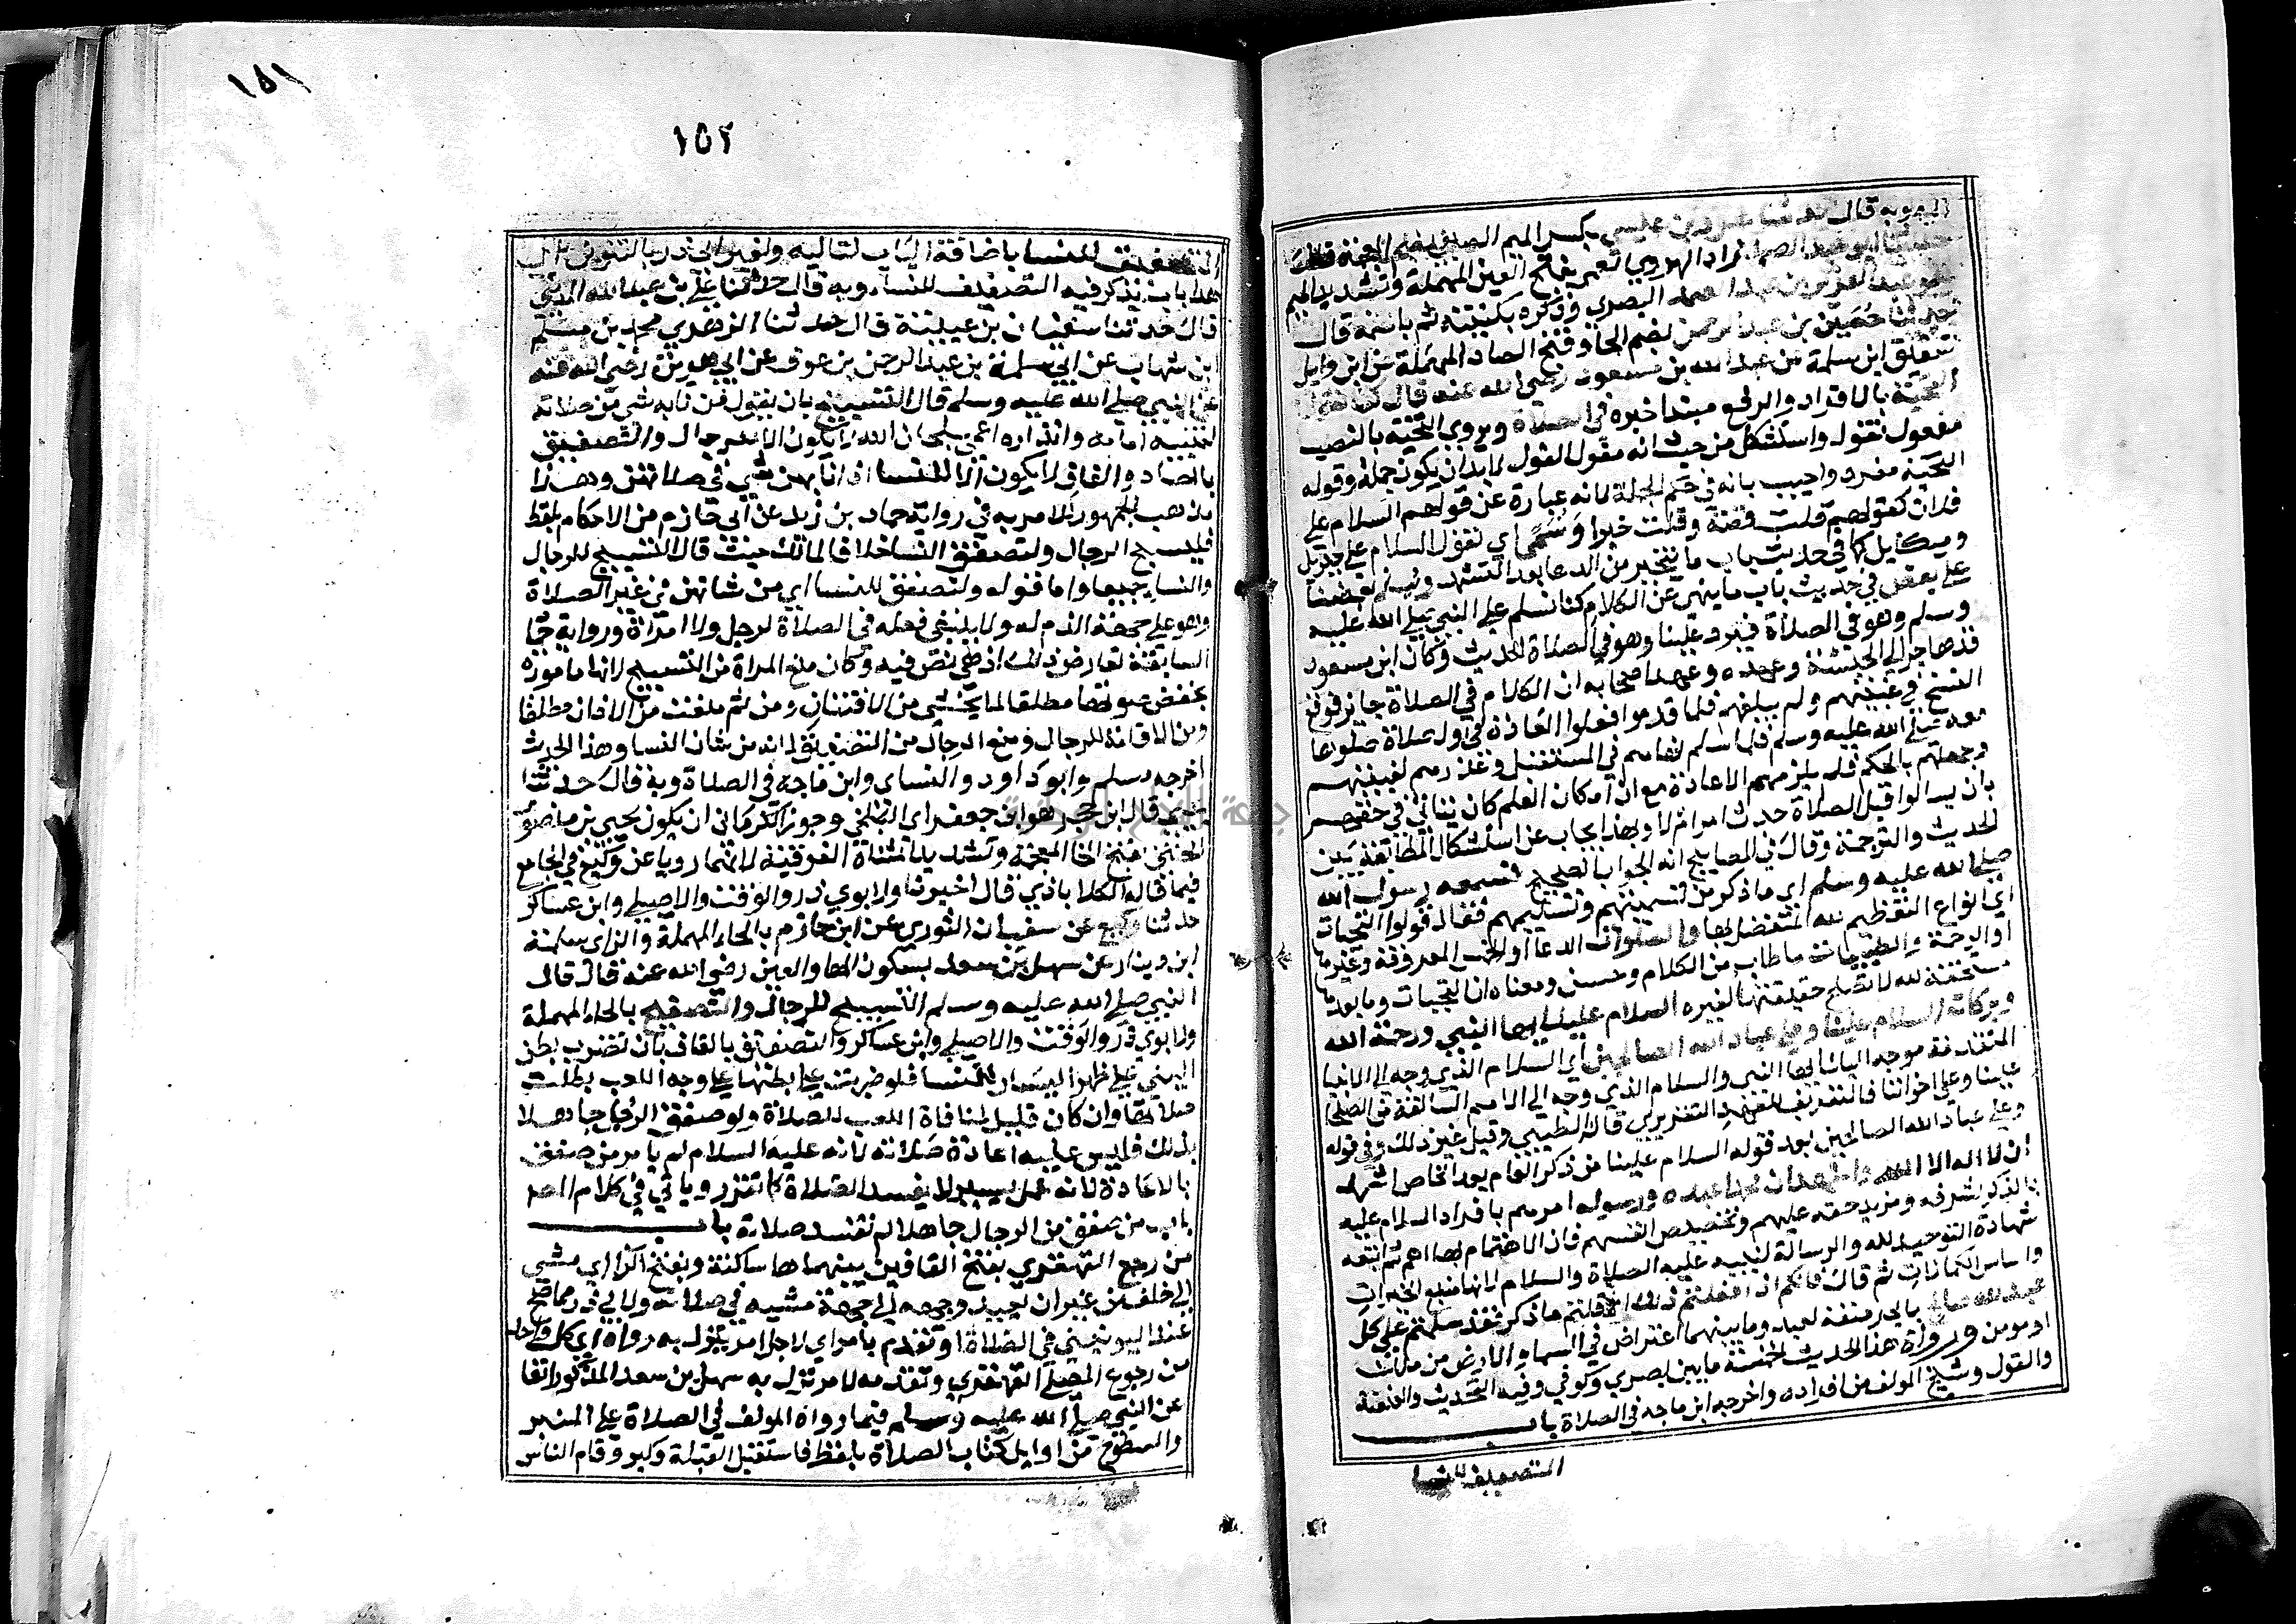 وبه قال حدثنا عمرو بن عيسى بكسر الميم الضبعي بضم المعجمة قال
حدثنا ابو عبد الصمد زاد الهروي العمي بفتح العين المهملة وتشديد الميم
عبد العزيز بن عبد الصمد البصري وذكره بكنيته ثم باسمه قال
حدثنا حصين بن عبد الرحمن بضم الحا وفتح الصاد المهملة عن ابي وايل
شقيق ابن سلمة عن عبد الله بن مسعود رضي الله عنه قال كنا نقول
التحية بالافراد والرفع مبتدا خبره في الصلاة ويروى التحية بالنصب
مفعول نقول واستشكل من حيث انه مقول القول لا بد ان يكون جملة وقوله
التحية مفرد واجيب بانه في حكم الجملة لانه عبارة عن قولهم السلام على
فلان كقولهم قلت قصة وقلت خبرا ونسمي اي نقول السلام على جبريل
وميكايل كما في حديث باب ما يتخير من الدعا بعد التشهد ويسلم بعضنا
على بعض في حديث باب ما ينهى عن الكلام كنا نسلم على النبي صلى الله عليه
وسلم وهو في الصلاة فيرد علينا وهو في الصلاة الحديث وكان ابن مسعود
قد هاجر الى الحبشة وعهده وعهد اصحابه ان الكلام في الصلاة جايز فوقع
النسخ في غيبتهم ولم يبلغهم فلما قدموا فعلوا العادة في اول صلاة صلوها
معه صلى الله عليه وسلم فلما سلم نهاهم في المستقبل وعذرهم لغيبتهم
وجهلهم بالحكم فلم يلزمهم الاعادة مع ان امكان العلم كان يتاتى في حقهم
بان يسالوا قبل الصلاة حدث امر ام لا وبهذا يجاب عن استشكال المطابقة بين
الحديث والترجمة وقال في المصابيح انه الجواب الصحيح فسمعه رسول الله
صلى الله عليه وسلم اي ما ذكر من تسميتهم وتسليمهم فقال قولوا التحيات
اي انواع التعظيم لله المتفضل بها والصلوات الدعا او الخمس المعروفة وغيرها
او الرحمة والطيبات ما طاب من الكلام وحسن ومعناه ان التحيات وما بعدها
مستحقة لله لا تصلح حقيقتها لغيره السلام عليك ايها النبي ورحمة الله
وبركاته السلام علينا وعلى عباد الله الصالحين اي السلام الذي وجه الى الانبيا
المتقدمة موجه اليك ايها النبي والسلام الذي وجه الى الامم السالفة من الصلحا
علينا وعلى اخواننا فالتعريف للعهد التقريري قاله الطيبي وقيل غير ذلك وفي قوله
وعلى عباد الله الصالحين بعد قوله السلام علينا من ذكر العام بعد الخاص اشهد
ان لا اله الا الله واشهد ان محمدا عبده ورسوله امرهم بافراد السلام عليه
بالذكر لشرفه ومزيد حقه عليهم وتخصيص انفسهم فان الاهتمام بها اهم ثم اتبعه
شهادة التوحيد لله والرسالة لنبيه عليه الصلاة والسلام لانها منبع الخيرات
واساس الكمالات ثم قال فانكم اذا فعلتم ذلك اي قلتم ما ذكر فقد سلمتم على كل
عبد لله صالح بالجر صفة لعبد وما بينهما اعتراض في السماء والارض من ملك
او مومن ورواة هذا الحديث خمسة ما بين بصري وكوفي وفيه التحديث والعنعنة
والقول وشيخ المولف من افراده واخرجه ابن ماجه في الصلاة باب
التصفيق للنسا
١٥١
١٥٢
التصفيق للنسا باضافة الباب لتاليه ولغير ابي ذر بالتنوين اي
هذا باب يذكر فيه التصفيق للنسا وبه قال حدثنا علي بن عبد الله المديني
قال حدثنا سفيان بن عيينة قال حدثنا الزهري محمد بن مسلم
ابن شهاب عن ابي سلمة بن عبد الرحمن بن عوف عن ابي هريرة رضي الله عنه
عن النبي صلى الله عليه وسلم قال التسبيح بان يقول من نابه شي من صلاته
لتنبيه امامه وانذاره اعمى سبحان الله لا يكون الا للرجال والتصفيق
بالصاد والقاف لا يكون الا للنسا اذا نابهن شي في صلاتهن وهذا
مذهب الجمهور للامر به في رواية حماد بن زيد عن ابي حازم من الاحكام بلفظ
فليسبح الرجال ولتصفق النسا خلافا لمالك حيث قال التسبيح للرجال
والنسا جميعا واما قوله ولتصفق للنسا اي من شانهن في غير الصلاة
وهو على جهة الذم له ولا ينبغي فعله في الصلاة لرجل ولا امراة ورواية حماد
السابقة تعارض ذلك اذ هي نص فيه وكان منع المراة من التسبيح لانها مامورة
بخفض صوتها مطلقا لما يخشى من الافتتان ومن ثم منعت من الاذان مطلقا
ومن الاقامة للرجال ومنع الرجال من التصفيق لانه من شان النسا وهذا الحديث
اخرجه مسلم وابو داود والنساي وابن ماجه في الصلاة وبه قال حدثنا
يحيى قال ابن حجر هو ابن جعفر اي البلخي وجوز الكرماني ان يكون يحيى بن موسى
الختي بفتح الخا المعجمة وتشديد المثناة الفوقية لانهما رويا عن وكيع في الجامع
فيما قاله الكلاباذي قال اخبرنا ولابوي ذر والوقت والاصيلي وابن عساكر
حدثنا وكيع عن سفيان الثوري عن ابي حازم بالحاء المهملة والزاي سلمة
ابن دينار عن سهل بن سعد بسكون الها والعين رضي الله عنه قال قال
النبي صلى الله عليه وسلم التسبيح للرجال والتصفيح بالحاء المهملة
ولابوي ذر والوقت والاصيلي وابن عساكر والتصفيق بالقاف بان تضرب بطن
اليمنى على ظهر اليسار للنسا فلو ضربت على بطنها على وجه اللعب بطلت
صلاتها وان كان قليلا لمنافاة اللعب للصلاة ولو صفق الرجل جاهلا
بذلك فليس عليه اعادة صلاته لانه عليه السلام لم يامر من صفق
بالاعادة لانه عمل يسير لا يفسد الصلاة كما تقرر وياتي في كلام المصنف
باب من صفق من الرجال جاهلا لم تفسد صلاته باب
من رجع القهقرى بفتح القافين بينهما ها ساكنة وبفتح الرا اي مشى
الى خلف من غير ان يعيد وجهه الى جهة مشيه في صلاته ولابي ذر مما صح
عند اليونيني في الصلاة او تقدم بامر اي لاجل امر ينزل به رواه اي كل واحد
من رجوع المصلي القهقرى وتقدمه لامر نزل به سهل بن سعد المذكور انفا
عن النبي صلى الله عليه وسلم فيما رواه المولف في الصلاة على المنبر
والسطوح من اوايل كتاب الصلاة بلفظ فاستقبل القبلة وكبر وقام الناس